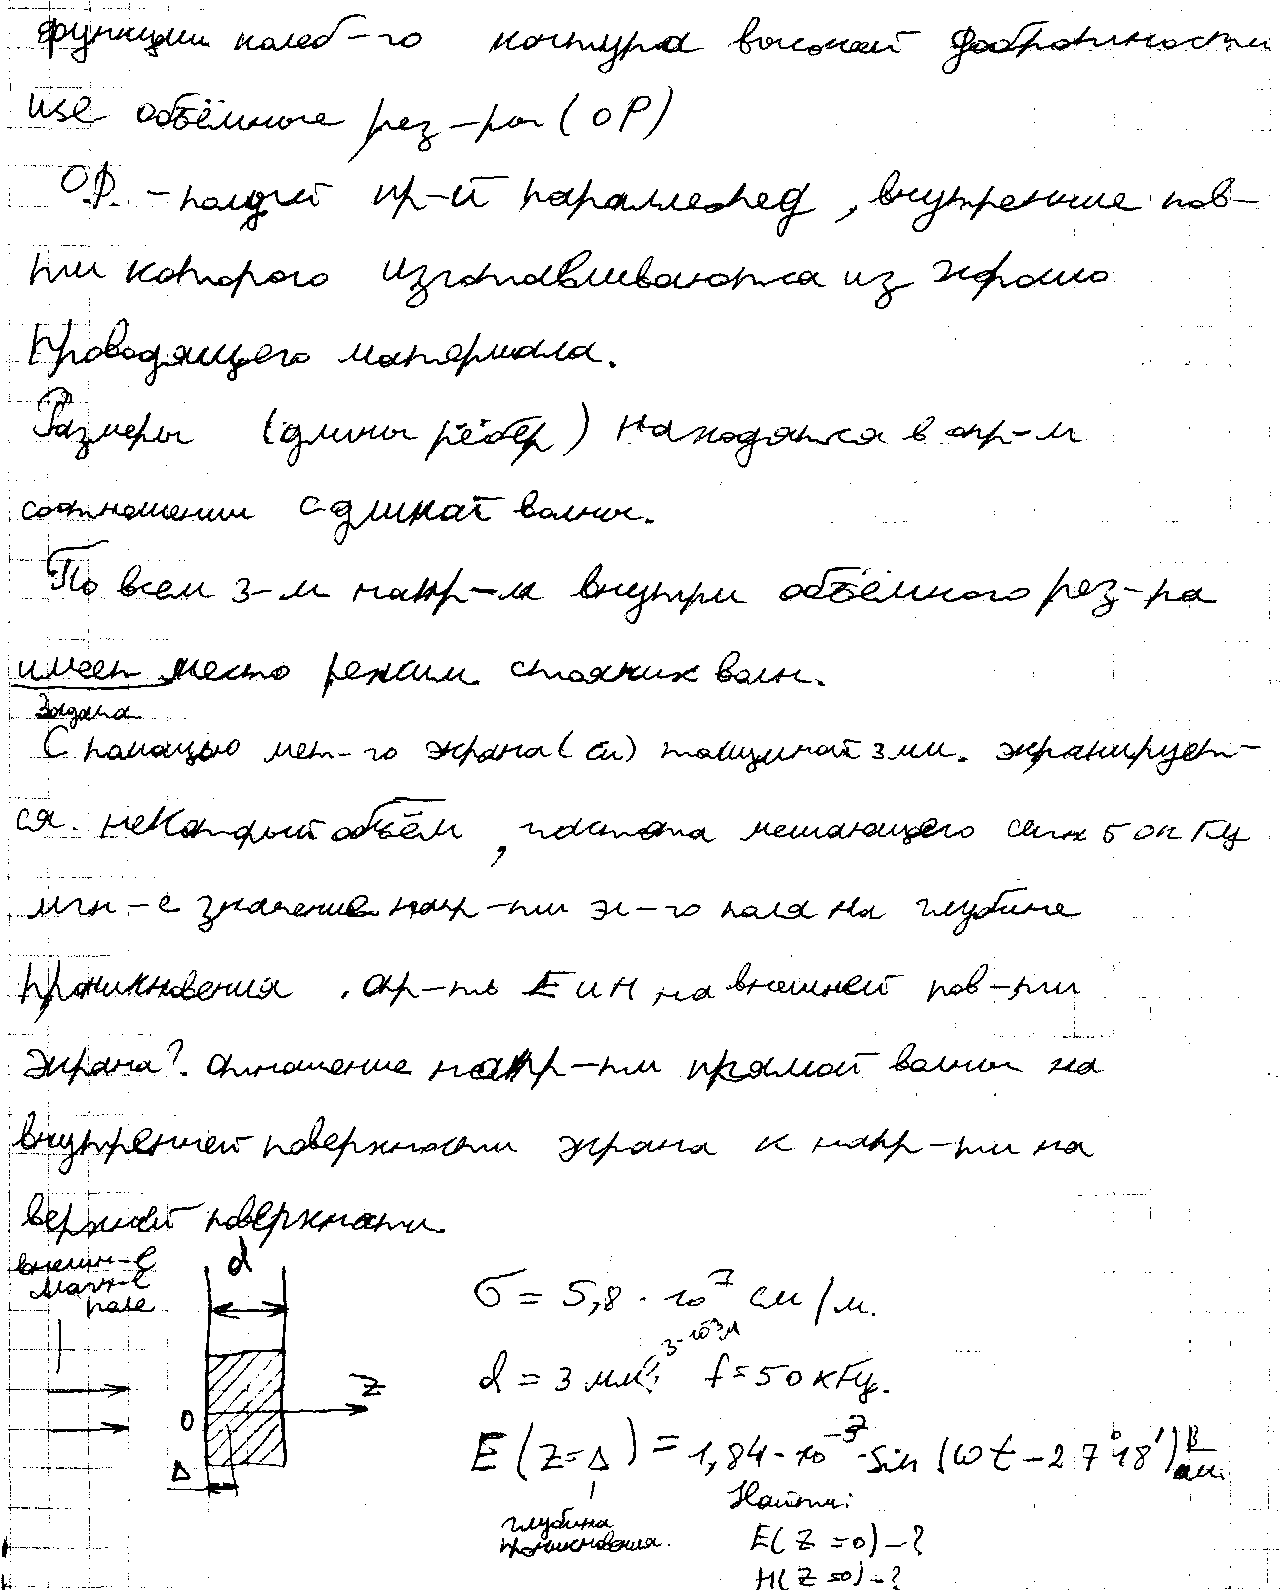 функции колеб-го контура высокой добротности
use объёмные рез-ры (ОР)
О.Р. - полый пр-й параллепед, внутренние пов-
ти которого изготавливаются из хорошо
проводящего материала.
Размеры (длины рёбер) находятся в опр-м
соотношении с длиной волны.
По всем 3-м напр-м внутри объёмного рез-ра
имеет место режим стоячих волн.
Задача
С помощью мет-го экрана (си) толщиной 3 мм. экранирует-
ся. некоторый объём, частота мешающего 50 кГц
мгн-е значение напр-ти эл-го поля на глубине
проникновения. опр-ть E и H на внешней пов-ти
экрана?. отношение напр-ти прямой волны на
внутренней поверхности экрана к напр-ти на
верхней поверхности.
внешн-е
магн-е
поле
d
σ = 5,8 · 10^7 см/м.
d = 3 мм; 3·10^-3 м f = 50 кГц.
Z
0
Δ
E (Z=Δ) = 1,84·10^-3 · sin (ωt - 27°18') В/см.
глубина
проникновения.
Найти:
E(Z=0) - ?
H(Z=0) - ?